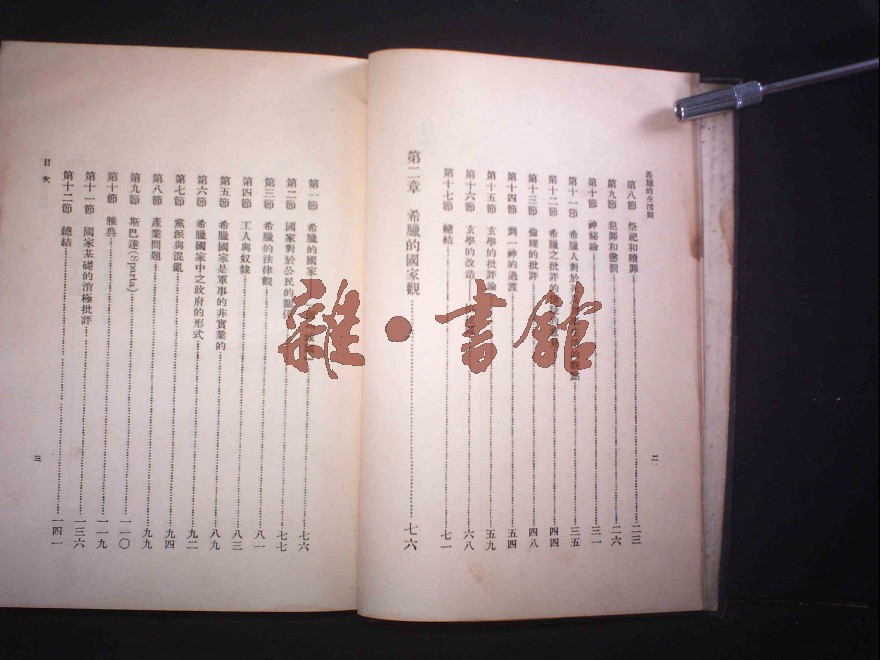 希臘的生活觀
第八節 祭祀和贖罪 二三
第九節 犯罪和懲罰 二六
第十節 神秘論 三一
第十一節 希臘人對於 三五
第十二節 希臘之批評的 四四
第十三節 倫理的批評 四八
第十四節 到一神的過渡 五四
第十五節 玄學的批評論 五九
第十六節 玄學的改造 六八
第十七節 總結 七一
第二章 希臘的國家觀 七六
二
第一節 希臘的國家 七六
第二節 國家對於公民的關係 七七
第三節 希臘的法律觀 八一
第四節 工人與奴隸 八三
第五節 希臘國家是軍事的非實業的 八九
第六節 希臘國家中之政府的形式 九二
第七節 黨派與混亂 九四
第八節 產業問題 九九
第九節 斯巴達(Sparta) 一一〇
第十節 雅典 一一九
第十一節 國家基礎的消極批評 一三六
第十二節 總結 一四一
目次
三
雜·書館